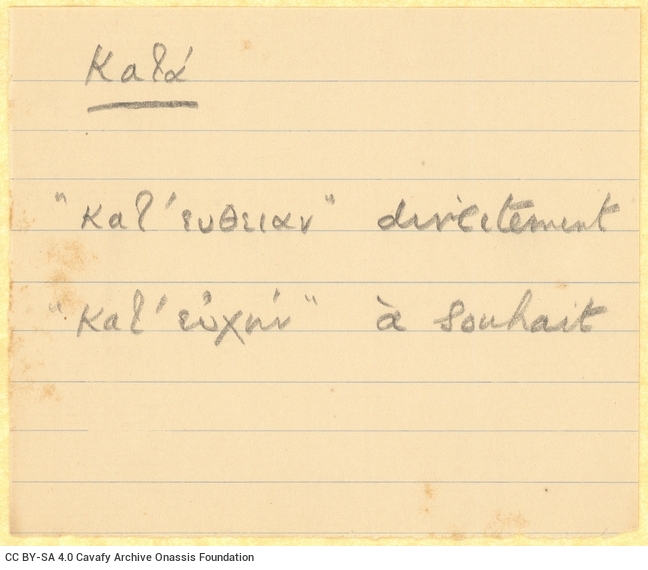 Κατά
"κατ' ευθειαν" directement
"κατ' εὐχήν" à souhait
CC BY-SA 4.0 Cavafy Archive Onassis Foundation